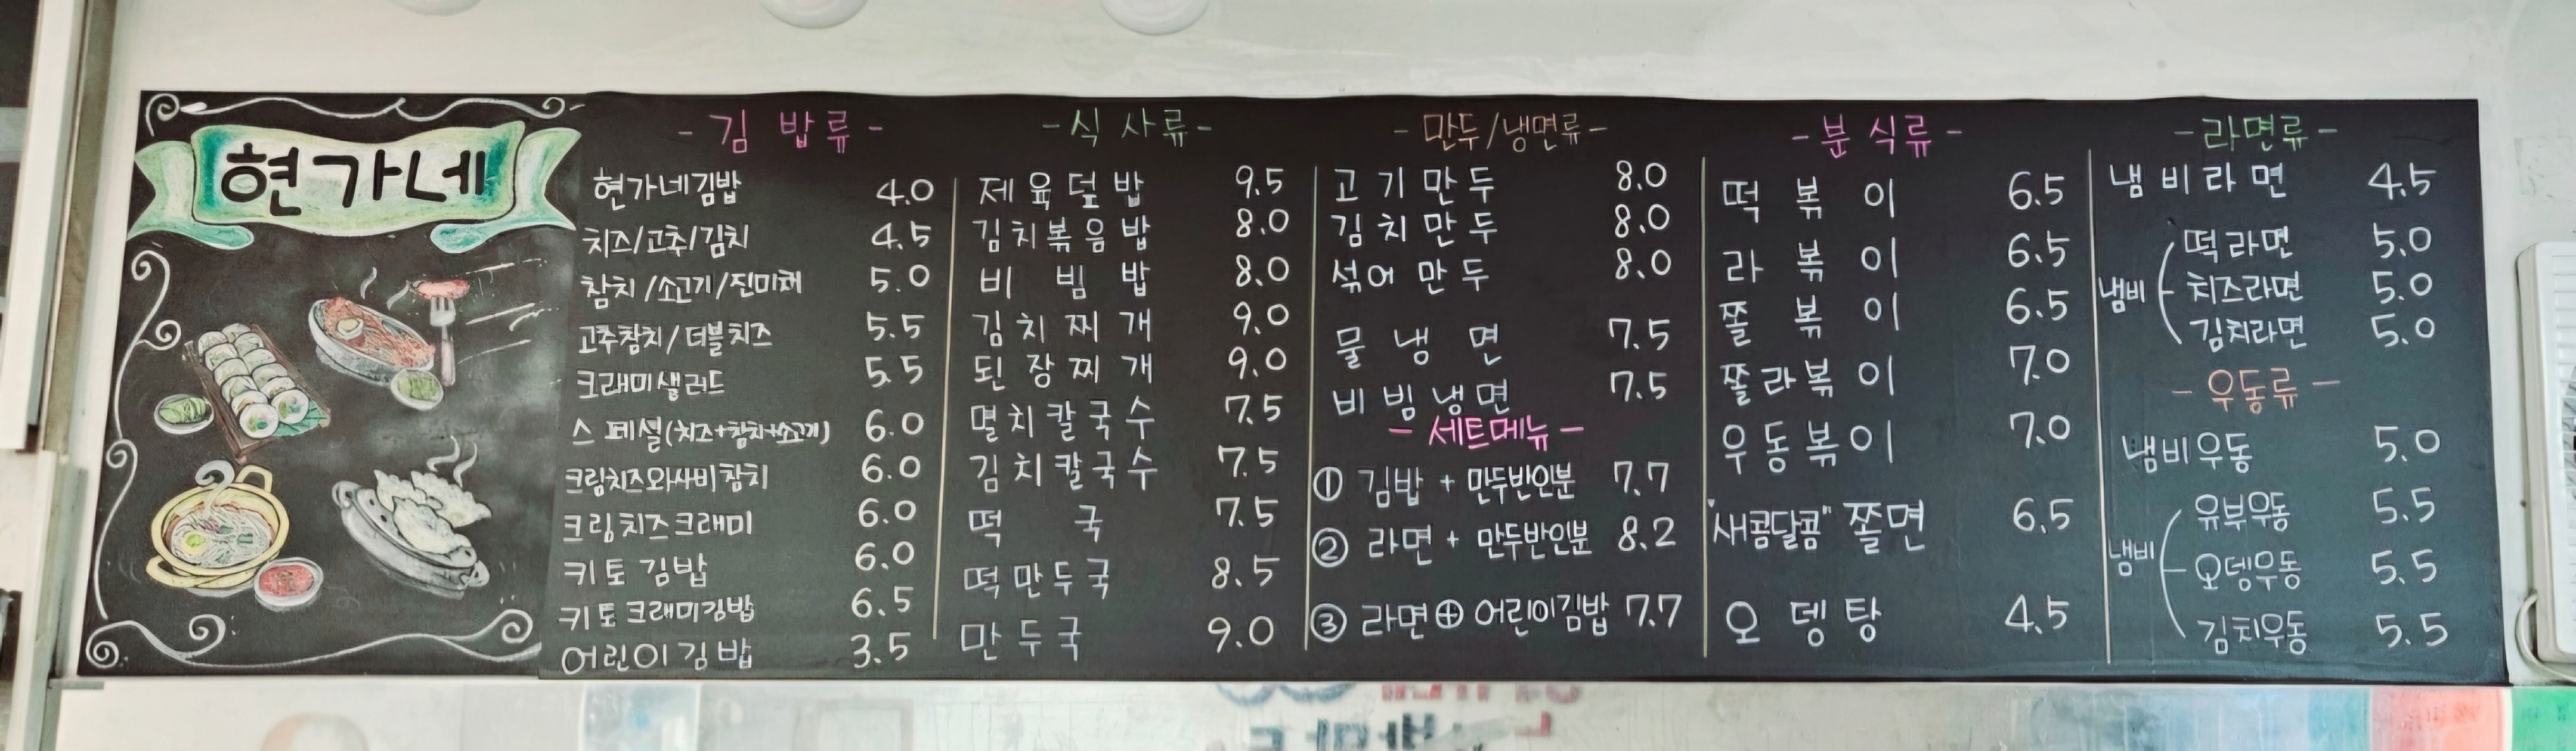 현가네
- 김밥류 -
현가네김밥 4.0
치즈/고추/김치 4.5
참치/소고기/진미채 5.0
고추참치/더블치즈 5.5
크래미샐러드 5.5
스페셜(치즈+참치+소고기) 6.0
크림치즈와사비참치 6.0
크림치즈크래미 6.0
키토김밥 6.0
키토크래미김밥 6.5
어린이김밥 3.5
- 식사류 -
제육덮밥 9.5
김치볶음밥 8.0
비빔밥 8.0
김치찌개 9.0
된장찌개 9.0
멸치칼국수 7.5
김치칼국수 7.5
떡국 7.5
떡만두국 8.5
만두국 9.0
- 만두/냉면류 -
고기만두 8.0
김치만두 8.0
섞어만두 8.0
물냉면 7.5
비빔냉면 7.5
- 세트메뉴 -
① 김밥 + 만두반인분 7.7
② 라면 + 만두반인분 8.2
③ 라면 ⊕ 어린이김밥 7.7
- 분식류 -
떡볶이 6.5
라볶이 6.5
쫄볶이 6.5
쫄라볶이 7.0
우동볶이 7.0
"새콤달콤" 쫄면 6.5
오뎅탕 4.5
- 라면류 -
냄비라면 4.5
냄비
떡라면 5.0
치즈라면 5.0
김치라면 5.0
- 우동류 -
냄비우동 5.0
냄비
유부우동 5.5
오뎅우동 5.5
김치우동 5.5